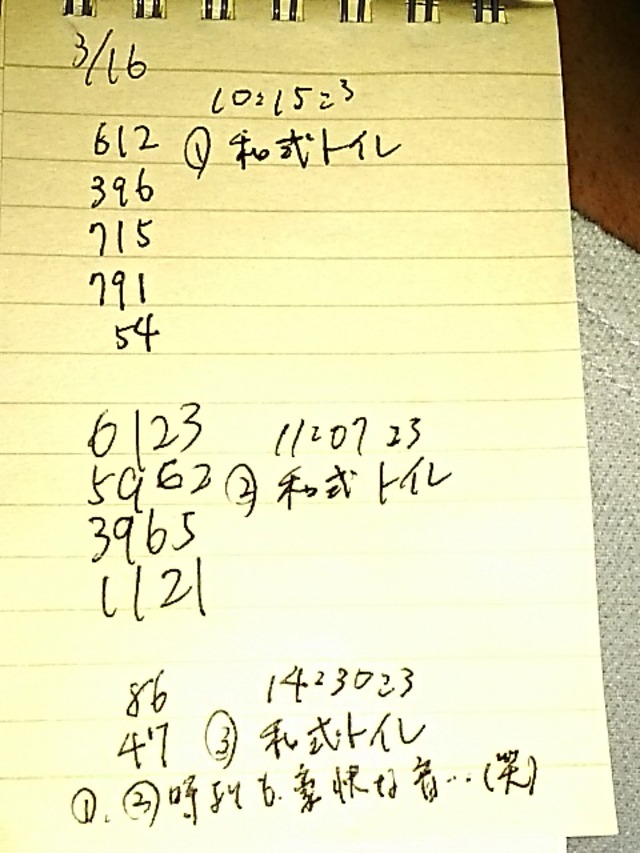 3/16
10:15:3
612 ① 和式トイレ
396
715
791
54
6123 11:07:23
5962 ② 和式トイレ
3965
1121
86 14:30:3
47 ③ 和式トイレ
①、② 時刻も、豪快な音…(笑)